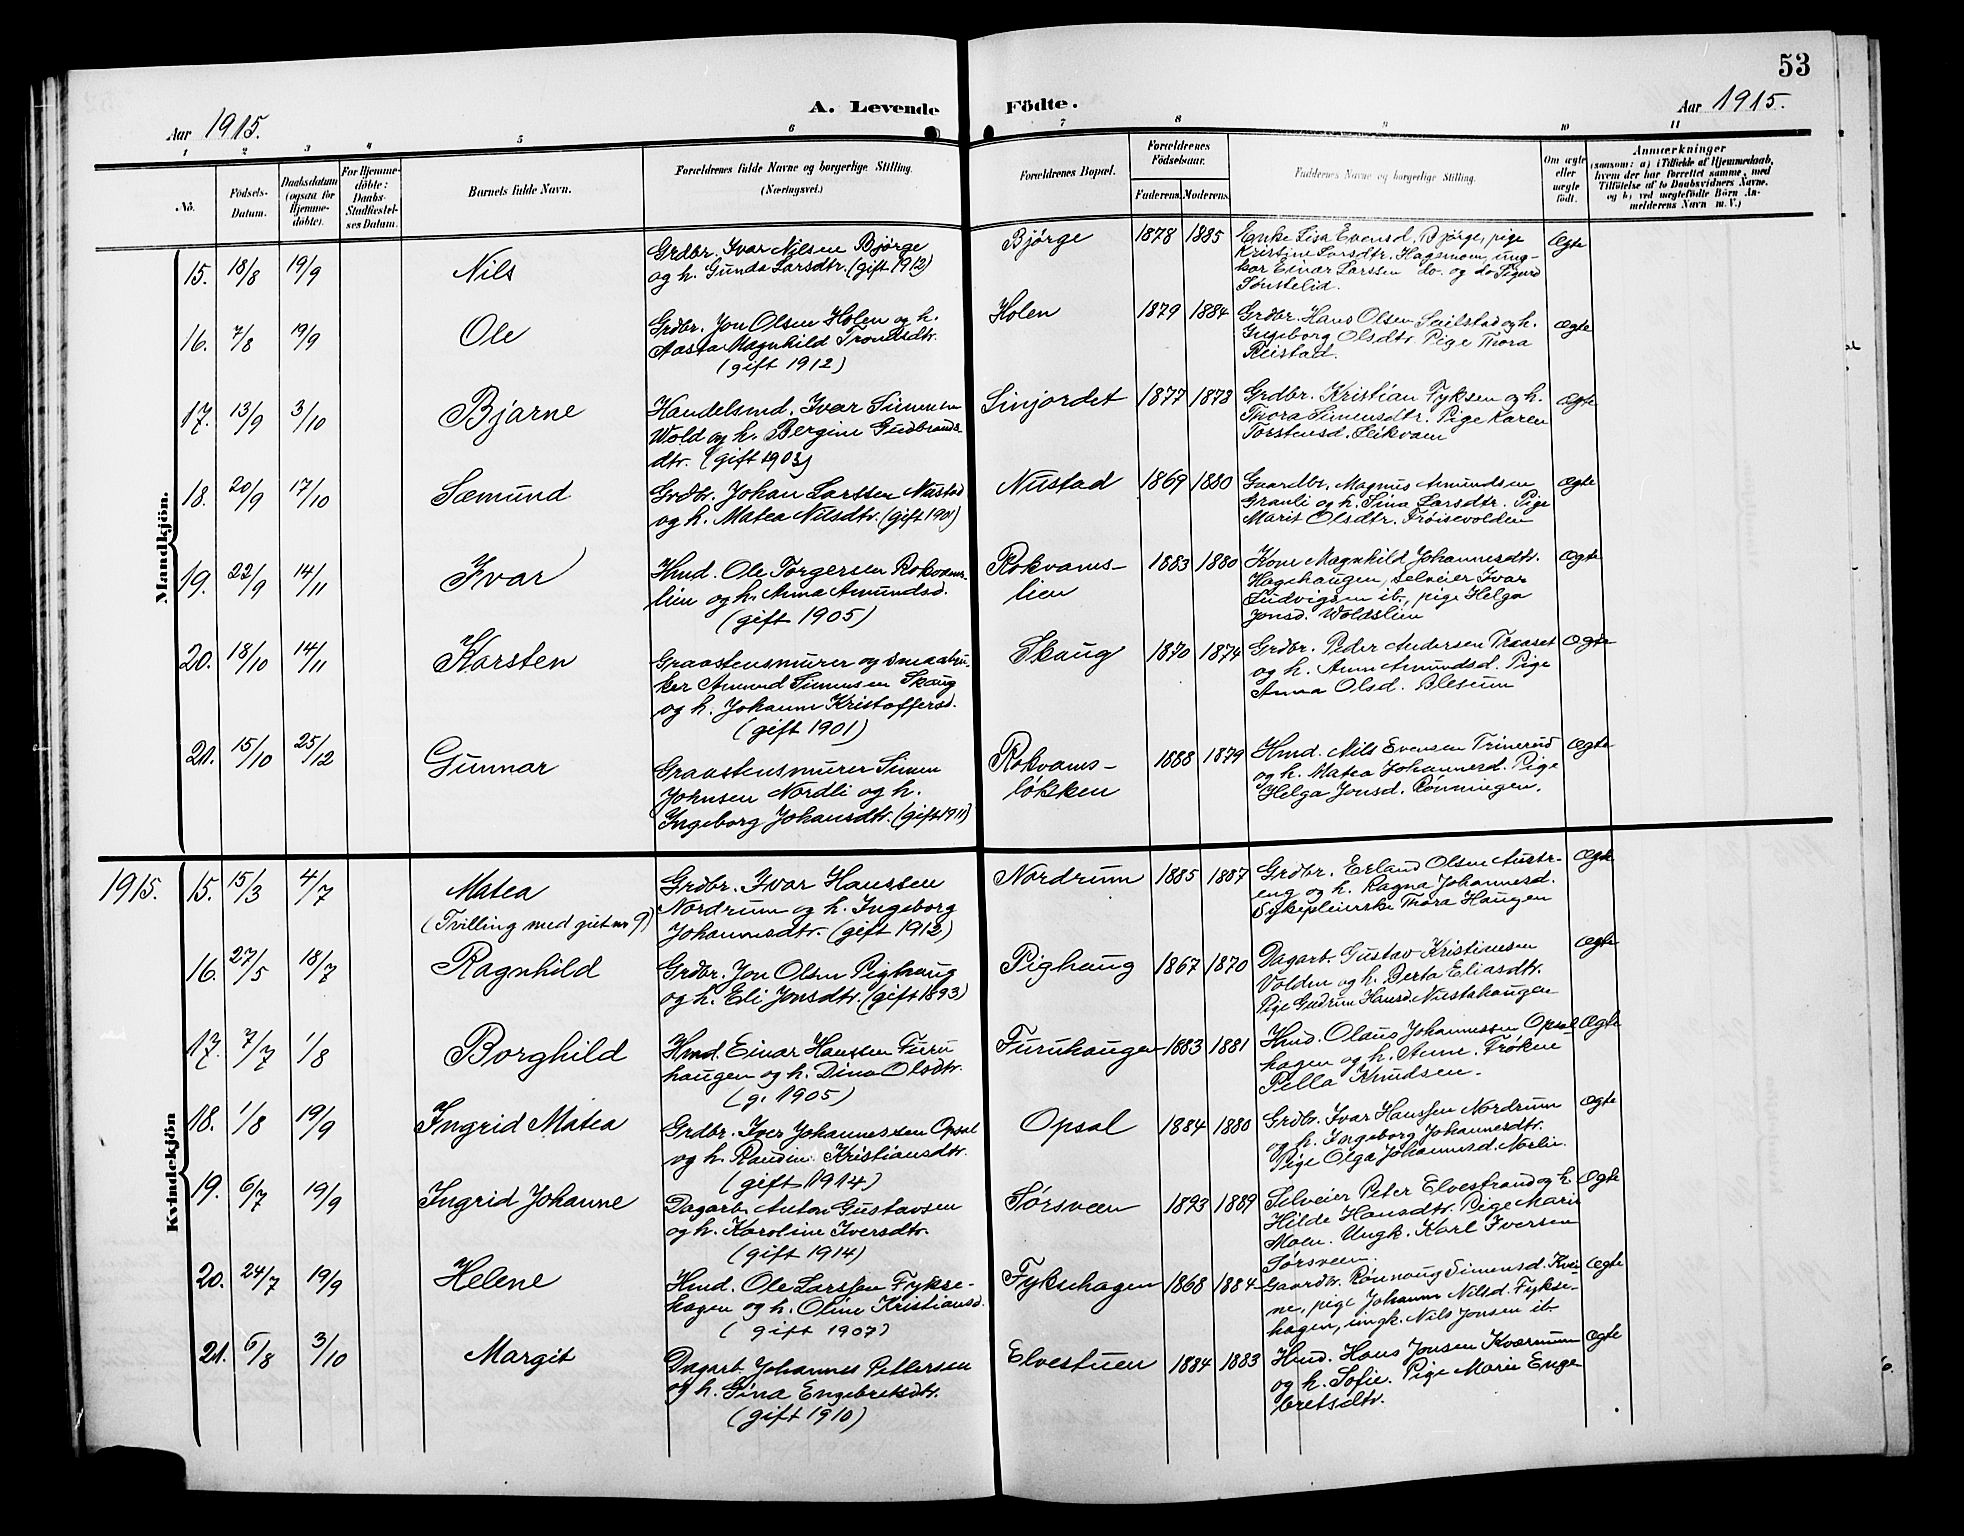 53
A. Levende Födte.
Aar 1915.
Aar 1915.
1 2 3 4 5 6 7 8 9 10 11
Nô.
Födsels-Datum.
Daabsdatum (ogsaa for Hjemmedöbte).
For Hjemmedöbte: Daabs-Stadfæstelses Datum.
Barnets fulde Navn.
Forældrenes fulde Navne og borgerlige Stilling. (Næringsvei.)
Forældrenes Bopæl.
Forældrenes Födselsaar.
Faderens. Moderens.
Faddernes Navne og borgerlige Stilling.
Om ægte eller uægte födt.
Anmærkninger
(saasom: a) i Tilfælde af Hjemmedaab, hvem der har forrettet samme, med Tilföielse af to Daabsvidners Navne, og b) ved uægtefödte Börn Anmelderens Navn m. V.)
Mandkjön.
15. 18/8 19/9 Nils
Grdbr. Ivar Nilsen Bjørge
og h. Gunda Larsdtr. (gift 1912)
Bjørge 1878 1885
Enke Lisa Evensd. Bjørge, pige
Kristine Larsdtr. Hagemoen, ung-
kar Einar Larssen do. og do Sigurd
Sønstelid.
Ægte
16. 7/8 19/9 Ole
Grdbr. Jon Olsen Holen og h.
Aasta Magnhild Trondsdtr.
(gift 1912)
Holen 1879 1884
Grdbr. Hans Olsen Seilstad og h.
Ingeborg Olsdtr. Pige Thora
Reistad.
Ægte
17. 13/9 3/10 Bjarne
Handelsmd. Ivar Simensen
Wold og h. Bergine Gudbrands-
dtr. (gift 1903)
Linjordet 1877 1873
Grdbr. Kristian Fyksen og h.
Thora Simensdtr. Pige Karen
Torstensd. Slikvam
Ægte
18. 20/9 17/10 Sæmund
Grdbr. Johan Larssen Nustad
og h. Matea Nilsdtr. (gift 1901)
Nustad 1869 1880
Gaardbr. Magnus Amundsen
Granli og h. Sina Larsdtr. Pige
Marit Olsdtr. Frøisevolden
Ægte
19. 22/9 14/11 Ivar
Hmd. Ole Torgersen Rokvams-
lien og h. Anna Amundsd.
(gift 1905)
Rokvams-
lien 1883 1880
Kone Magnhild Johannesdtr.
Hagehaugen, selveier Ivar
Ludvigsen ib., pige Helga
Jonsd. Woldslien
Ægte
20. 18/10 14/11 Karsten
Graastensmurer og smaabru-
ker Amund Simensen Skaug
og h. Johanne Kristoffersd.
(gift 1901)
Skaug 1870 1874
Grdbr. Peder Andersen Traaset
og h. Anne Amundsd. Pige
Anna Olsd. Blesum
Ægte
21. 15/10 25/12 Gunnar
Graastensmurer Simen
Johnsen Nordli og h.
Ingeborg Johansdtr. (gift 1911)
Rokvams-
løkken 1888 1879
Hmd. Nils Evensen Trinerud
og h. Matea Johannesd. Pige
Helga Jonsd. Rønningen.
Ægte
1915.
Kvindekjön
15. 15/3 4/7 Matea
(Tvilling med gut nr 9)
Grdbr. Ivar Hanssen
Nordrum og h. Ingeborg
Johannesdtr. (gift 1912)
Nordrum 1885 1887
Grdbr. Erland Olsen Austr-
eng og h. Ragna Johannesd.
Sykepleierske Thora Haugen
Ægte
16. 27/5 18/7 Ragnhild
Grdbr. Jon Olsen Pighaug
og h. Eli Jonsdtr. (gift 1893)
Pighaug 1867 1870
Dagarb. Gustav Kristiansen
Volden og h. Berta Eliasdtr.
Pige Gudrun Hansd. Nustahaugen
Ægte
17. 7/7 1/8 Borghild
Hmd. Einar Hanssen Furu
haugen og h. Dina Olsdtr.
(g. 1905)
Furuhaugen 1883 1881
Hmd. Olaus Johannessen Opsal
hagen og h. Anne. Frøken
Pella Knudsen.
Ægte
18. 1/8 19/9 Ingrid Matea
Grdbr. Iver Johannessen Opsal
og h. Randine Kristiansdtr.
(gift 1914)
Opsal 1884 1880
Grdbr. Ivar Hanssen Nordrum
og h. Ingeborg Johannesdtr.
Pige Olga Johannesd. Norlie.
Ægte
19. 6/7 19/9 Ingrid Johanne
Dagarb. Anton Gustavsen
og h. Karoline Iversdtr.
(gift 1914)
Sørsveen 1893 1889
Selveier Peter Elvestrand og h
Hilde Hansdtr. Pige Marie
Moen. Ungk. Karl Iversen
Sørsveen.
Ægte
20. 24/7 19/9 Helene
Hmd. Ole Larssen Fykse-
hagen og h. Oline Kristiansd.
(gift 1907)
Fyksehagen 1868 1884
Gaardbr. Rønnaug Simensd. Kver-
ne, pige Johanne Nilsd. Fykse-
hagen, ungk. Nils Jonsen ib.
Ægte
21. 6/8 3/10 Margit
Dagarb. Johannes Pettersen
og h. Gina Engebretsdtr.
(gift 1910)
Elvestuen 1884 1883
Hmd. Hans Jonsen Kværnum
og h. Sofie. Pige Marie Enge
bretsdtr.
Ægte